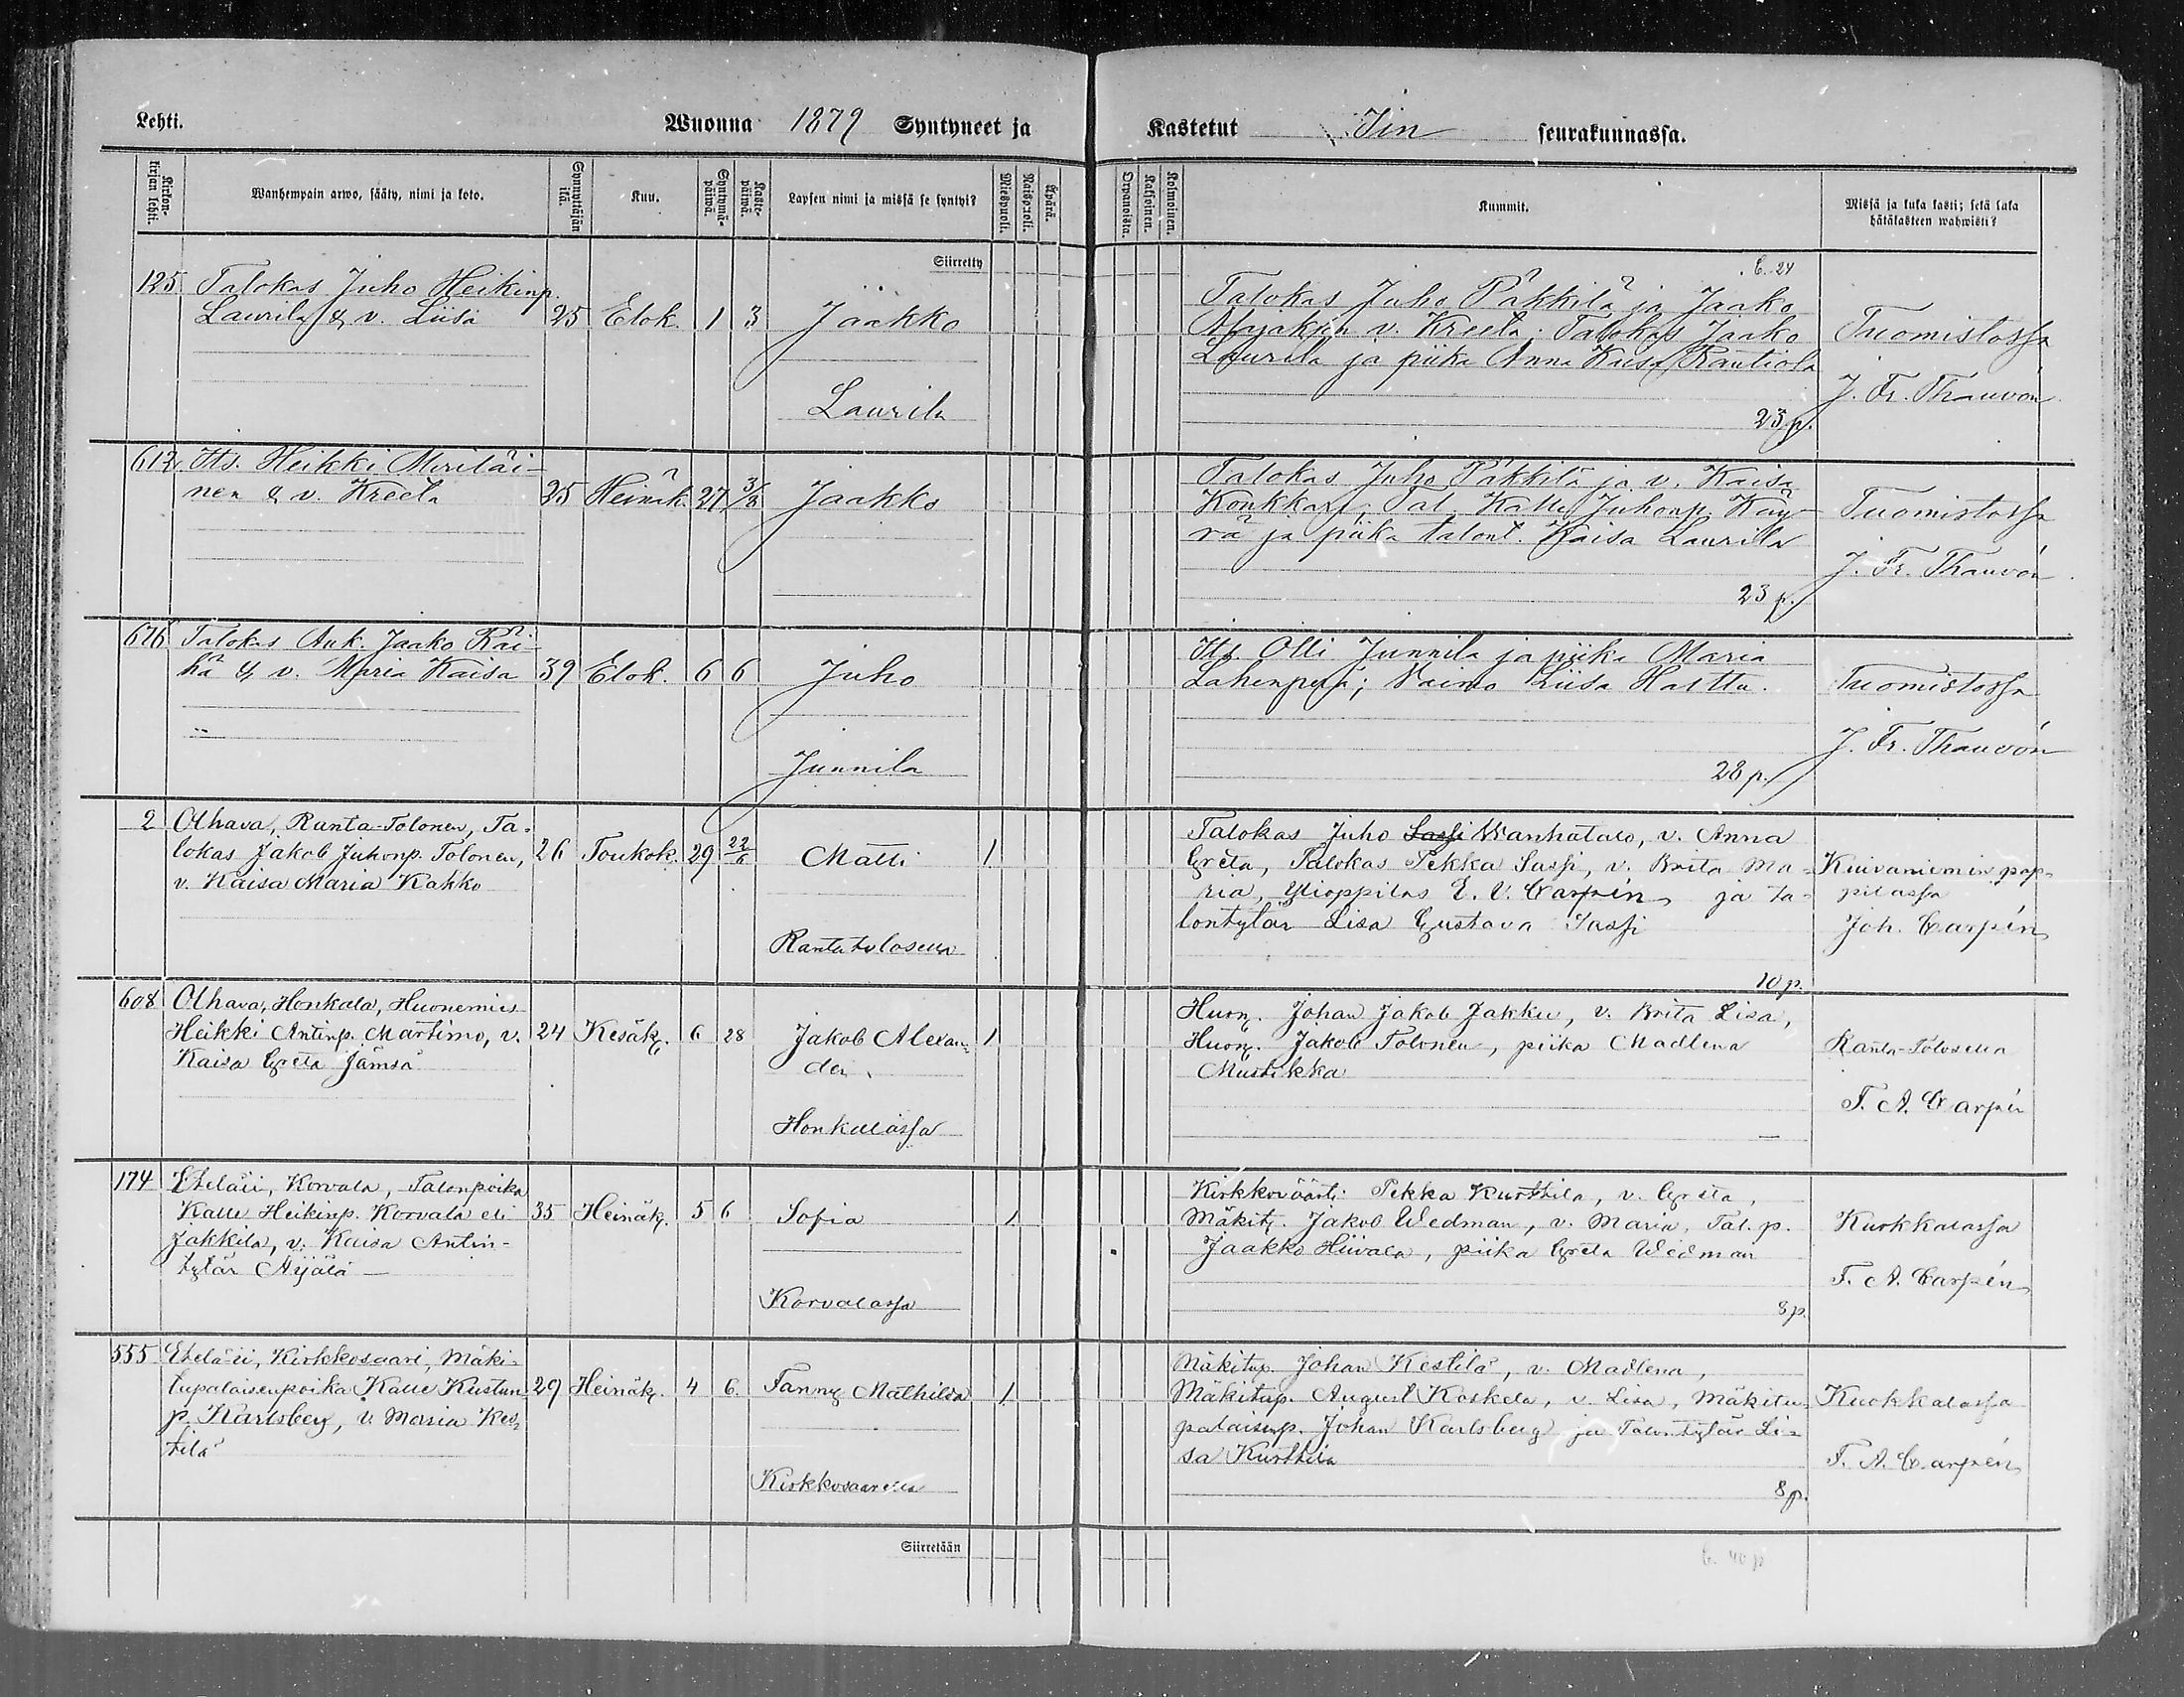 Lehti.
Wuonna 1879 Syntyneet ja
Kastetut Iin seurakunnassa.
Kirkonkirjan lehti.
Wanhempain arwo, sääty, nimi ja koto.
Synnyttäjän ikä.
Kuu.
Syntymäpäiwä.
Kastepäiwä.
Lapsen nimi ja missä se syntyi?
Miespuoli.
Naispuoli.
Äpärä.
Kaksoinen.
Kolmoinen.
Kummit.
Missä ja kuka kasti; sekä kuka
hätäkasteen wahwisti?
Siirretty
125 Talokas Juho Heikinp.
Laurila & v. Liisa 25 Elok. 1 3 Jaakko
Laurila
Talokas Juho Päkkilä ja Jaako
Majakan v. Kreeta; Talokas Jaako
Laurila ja piika Anna Kaisa Rautiola
23 p.
Tuomistossa
J. Fr. Thauvón
612 Its. Heikki Meriläi-
nen & v. Kreeta 25 Heinäk. 27 3/8 Jaakko
Talokas Juho Päkkilä ja v. Kaisa
Konkkari; Tal. Kalle Juhonp. Käy-
rä ja piika talont. Kaisa Laurila
23 p.
Tuomistossa
J. Fr. Thauvón
676 Talokas Auk. Jaako Räi-
hä & v. Maria Kaisa 39 Elok. 6 6 Juho
Junnila
Its. Olli Junnila ja piika Maria
Lahenperä; Vaimo Liisa Hastta.
28 p.
Tuomistossa
J. Fr. Thauvón
2 Olhava, Ranta-Tolonen, Ta-
lokas Jakob Juhonp. Tolonen, 26 Toukok. 29 22/6 Matti 1
v. Kaisa Maria Kakko
Rantatolosella
Talokas Juho Sassi Wanhatalo, v. Anna
Greta, Talokas Pekka Sassi, v. Brita Ma-
ria, Ylioppilas E. V. Carpén ja ta-
lontytär Lisa Gustava Sassi
10 p.
Kuivaniemin pap-
pilassa
Joh. Carpén
608 Olhava, Honkala, Huonemies
Heikki Antinp. Martimo, v. 24 Kesäk. 6 28 Jakob Alexan- 1
Kaisa Greta Jämsä
der.
Honkalassa
Huon. Johan Jakob Jakku, v. Brita Lisa,
Huon. Jakob Tolonen, piika Madlena
Mustikka
Ranta-Tolosella
F. A. Carpén
174 Eteläii, Korvala, Talonpoika
Kalle Heikinp. Korvala eli 35 Heinäk. 5 6 Sofia 1
Jakkila, v. Kaisa Antin-
tytär Äijälä
Korvalassa
Kirkkoväärti Pekka Kurttila, v. Greta,
Mäkit. Jakob Wedman, v. Maria, Tal. p.
Jaakko Hiivala, piika Greta Wedman
8 p.
Kuokkalassa
F. A. Carpén
555 Eteläii, Kirkkosaari, Mäki-
tupalaisenpoika Kalle Kustun- 29 Heinäk. 4 6. Fanny Mathilda 1
p. Karlsberg, v. Maria Kes-
tilä
Kirkkosaarella
Mäkitup. Johan Kestilä, v. Madlena,
Mäkitup. August Koskela, v. Lisa, Mäkitu-
palaisenp. Johan Karlsberg ja Talontytär Li-
sa Kurttila
8 p.
Kuokkalassa
F. A. Carpén
Siirretään